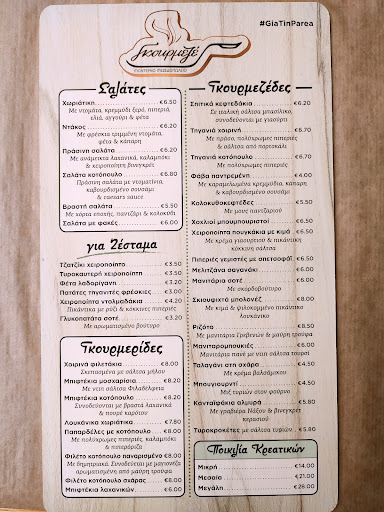 Γκουρμεζέ
#GiaTinParea
Σαλάτες
Χωριάτικη €6.50
Με ντομάτα, κρεμμύδι ξερό, πιπεριά,
ελιά, αγγούρι & φέτα
Ντάκος €6.20
Με φρέσκια τριμμένη ντομάτα,
φέτα & κάπαρη
Πράσινη σαλάτα €6.20
Με ανάμεικτα λαχανικά, καλαμπόκι
& χειροποίητη βινεγκρέτ
Σαλάτα κοτόπουλο €6.80
Πράσινη σαλάτα με ντοματίνια,
καβουρδισμένο σουσάμι
& caesars sauce
Βραστή σαλάτα €5.50
Με χόρτα εποχής, παντζάρι & κολοκύθι
Σαλάτα με φακές €6.00
για Ζέσταμα
Τζατζίκι χειροποίητο €3.50
Τυροκαυτερή χειροποίητη €3.50
Φέτα λαδορίγανη €3.20
Πατάτες τηγανιτές φρέσκιες €3.00
Χειροποίητα ντολμαδάκια €4.20
Πικάντικα με ρύζι & κόκκινες πιπεριές
Γλυκοπατάτα σοτέ €3.50
Με αρωματισμένο βούτυρο
Γκουρμερίδες
Χοιρινά φιλετάκια €8.00
Σκεπασμένα με σάλτσα μήλου
Μπιφτέκια μοσχαρίσια €8.20
Με νέτη σάλτσα Φιλαδέλφεια
Μπιφτέκια κοτόπουλο €8.20
Συνοδεύονται με βραστά λαχανικά
& πουρέ καρότου
Λουκάνικα χωριάτικα €7.80
Παπαρδέλες με κοτόπουλο €8.00
Με πολύχρωμες πιπεριές, καλαμπόκι
& πιπερόριζα
Φιλέτο κοτόπουλο παναρισμένο €8.00
Με δημητριακά. Συνοδεύεται με μαγιονέζα
αρωματισμένη από μαύρη τρούφα
Φιλέτο κοτόπουλο σχάρας €8.00
Μπιφτέκια λαχανικών €6.00
Γκουρμεζέδες
Σπιτικά κεφτεδάκια €6.20
Σε ιταλική σάλτσα μπασιλικό,
συνοδεύονται με γιαούρτι
Τηγανιά χοιρινή €6.70
Με πράσο, πολύχρωμες πιπεριές
& σάλτσα από πορτοκάλι
Τηγανιά κοτόπουλο €6.70
Με πολύχρωμες πιπεριές
Φάβα παντρεμένη €4.00
Με καραμελωμένα κρεμμύδια, κάπαρη
& καβουρδισμένο σουσάμι
Κολοκυθοκεφτέδες €5.20
Με μους παντζαριού
Χοχλιοί μπουμπουριστοί €6.20
Χειροποίητα πουγκάκια με κιμά €5.50
Με κρέμα γιαουρτιού & πικάντικη
κόκκινη σάλτσα
Πιπεριές γεμιστές με σπετσοφάι €5.50
Μελιτζάνα σαγανάκι €6.00
Μανιτάρια σοτέ €5.50
Με σκορδοβούτυρο
Σκιουφιχτά μπολονέζ €6.00
Με κιμά & ψιλοκομμένο πικάντικο
λουκάνικο
Ριζότο €6.50
Με μανιτάρια Γρεβενών & μαύρη τρούφα
Μανιταρομπουκιές €6.00
Μανιτάρια πανέ με νέτη σάλτσα τυριού
Ταλαγάνι στη σχάρα €4.50
Με κρέμα βαλσάμικου
Μπουγιουρντί €4.50
Με τυριά στον φούρνο
Κανταΐφάκια αλμυρά €5.80
Με γραβιέρα Νάξου & βινεγκρέτ
κερασιού
Τυροκροκέτες με σάλτσα τυριών €5.80
Ποικιλία Κρεατικών
Μικρή €14.00
Μεσαία €21.00
Μεγάλη €28.00